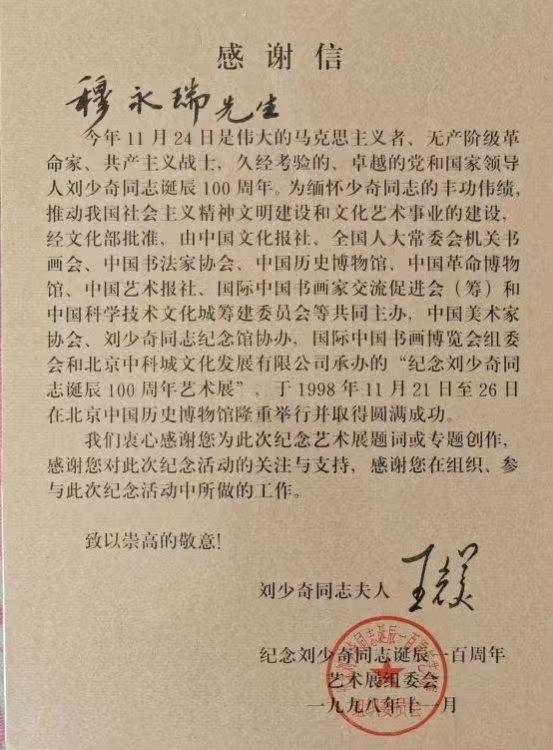 感谢信
穆永瑞先生
今年11月24日是伟大的马克思主义者、无产阶级革
命家、共产主义战士，久经考验的、卓越的党和国家领导
人刘少奇同志诞辰100周年。为缅怀少奇同志的丰功伟绩，
推动我国社会主义精神文明建设和文化艺术事业的建设，
经文化部批准，由中国文化报社、全国人大常委会机关书
画会、中国书法家协会、中国历史博物馆、中国革命博物
馆、中国艺术报社、国际中国书画家交流促进会（筹）和
中国科学技术文化城筹建委员会等共同主办，中国美术家
协会、刘少奇同志纪念馆协办，国际中国书画博览会组委
会和北京中科城文化发展有限公司承办的“纪念刘少奇同
志诞辰100周年艺术展”，于1998年11月21日至26日
在北京中国历史博物馆隆重举行并取得圆满成功。
我们衷心感谢您为此次纪念艺术展题词或专题创作，
感谢您对此次纪念活动的关注与支持，感谢您在组织、参
与此次纪念活动中所做的工作。
致以崇高的敬意！
刘少奇同志夫人 王光美
纪念刘少奇同志诞辰一百周年
艺术展组委会
一九九八年十一月
组织委员会